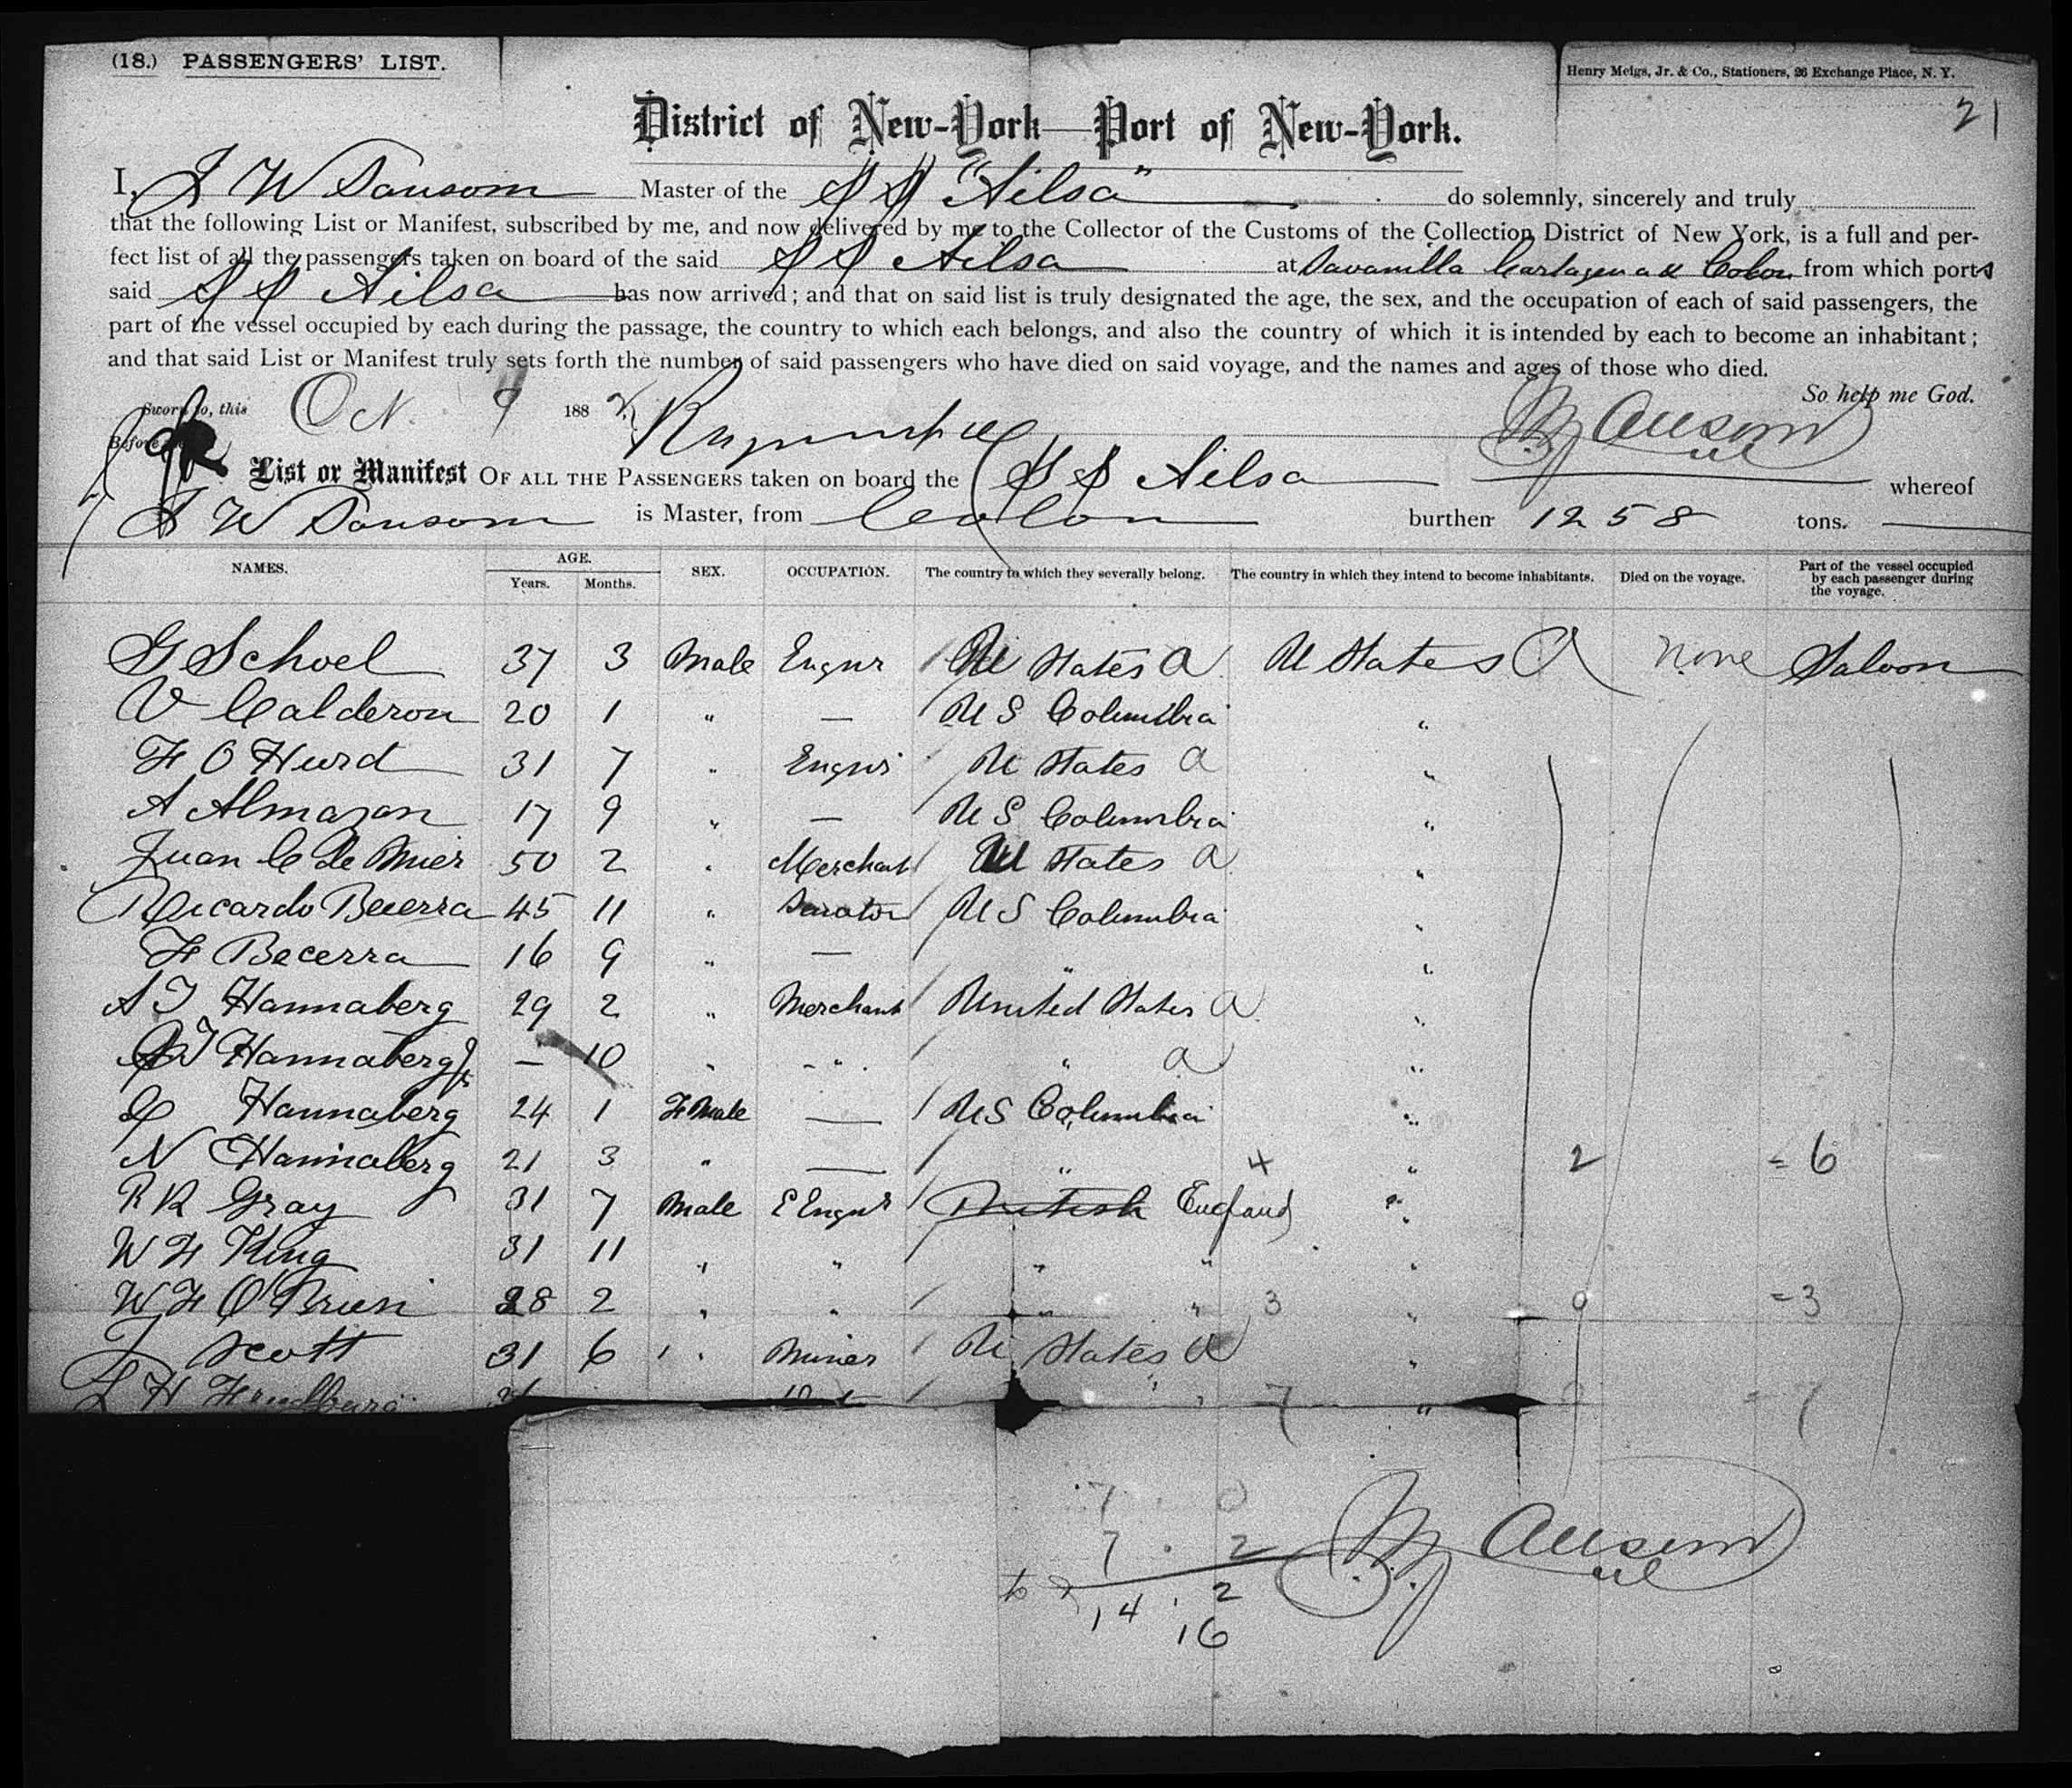 (18.) PASSENGERS' LIST.
Henry Meigs, Jr. & Co., Stationers, 26 Exchange Place, N. Y.
21
District of New-York—Port of New-York.
I, J W Sansom Master of the S S "Ailsa" do solemnly, sincerely and truly
that the following List or Manifest, subscribed by me, and now delivered by me to the Collector of the Customs of the Collection District of New York, is a full and per-
fect list of all the passengers taken on board of the said S S Ailsa at Savanilla Cartagena & Colon from which ports
said S S Ailsa has now arrived; and that on said list is truly designated the age, the sex, and the occupation of each of said passengers, the
part of the vessel occupied by each during the passage, the country to which each belongs, and also the country of which it is intended by each to become an inhabitant;
and that said List or Manifest truly sets forth the number of said passengers who have died on said voyage, and the names and ages of those who died.
So help me God.
Sworn to, this Oct. 9 1882
Before me
List or Manifest OF ALL THE PASSENGERS taken on board the S S Ailsa whereof
J W Sansom is Master, from Colon burthen 1258 tons.
NAMES. AGE. Years. Months. SEX. OCCUPATION. The country to which they severally belong. The country in which they intend to become inhabitants. Died on the voyage. Part of the vessel occupied by each passenger during the voyage.
G Schoel 37 3 Male Engnr U States A U States A None Saloon
V Calderon 20 1 " — U S Columbia "
F O Hurd 31 7 " Engnr U States A "
A Almazan 17 9 " — U S Columbia "
Juan C de Mier 50 2 " Merchant U States A "
Ricardo Becerra 45 11 " Senator U S Columbia "
F Becerra 16 9 " — " "
A J Hannaberg 29 2 " Merchant United States A "
J Hannaberg Jr — 10 " " " A "
Hannaberg 24 1 FMale — U S Columbia "
N Hannaberg 21 3 " — " 4 " 2 = 6
R R Gray 31 7 Male E Engnr British England "
W F King 31 11 " " " " "
W F O'Brien 28 2 " " " " 3 " 0 = 3
J Scott 31 6 " Miner U States A "
H " " 7 " 0 = 7
7 . 0
7 . 2
14 . 2
16